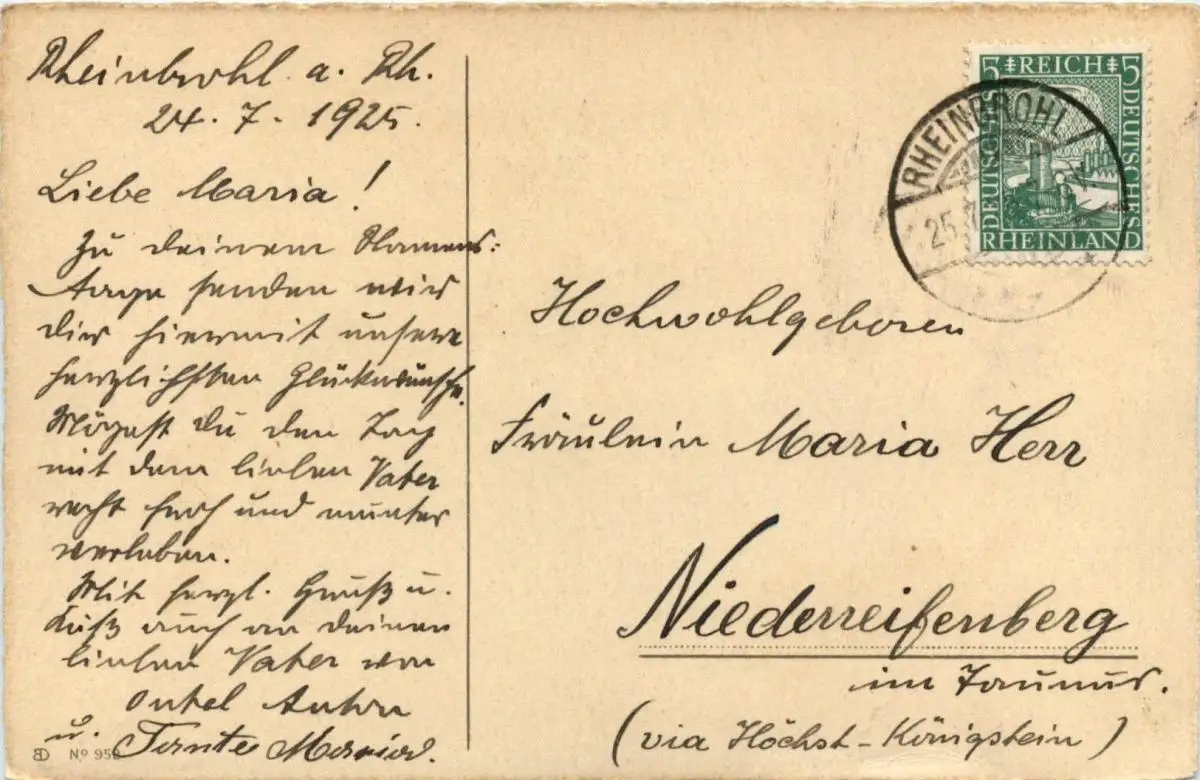 Rheinbrohl a. Rh.
24. 7. 1925.
Liebe Maria!
Zu deinem Namens-
Tage senden wir
dir hiermit unsere
herzlichsten Glückwünsche.
Mögest du den Tag
mit dem lieben Vater
recht froh und munter
verleben.
Mit herzl. Gruß u.
Kuß auch an deinen
lieben Vater von
Onkel Anton
u. Tante Maria.
BD No 959
5 REICH 5
DEUTSCHES
DEUTSCHES
RHEINLAND
RHEINBROHL
25.
Hochwohlgeboren
Fräulein Maria Herr
Niederreifenberg
im Taunus.
(via Höchst-Königstein)